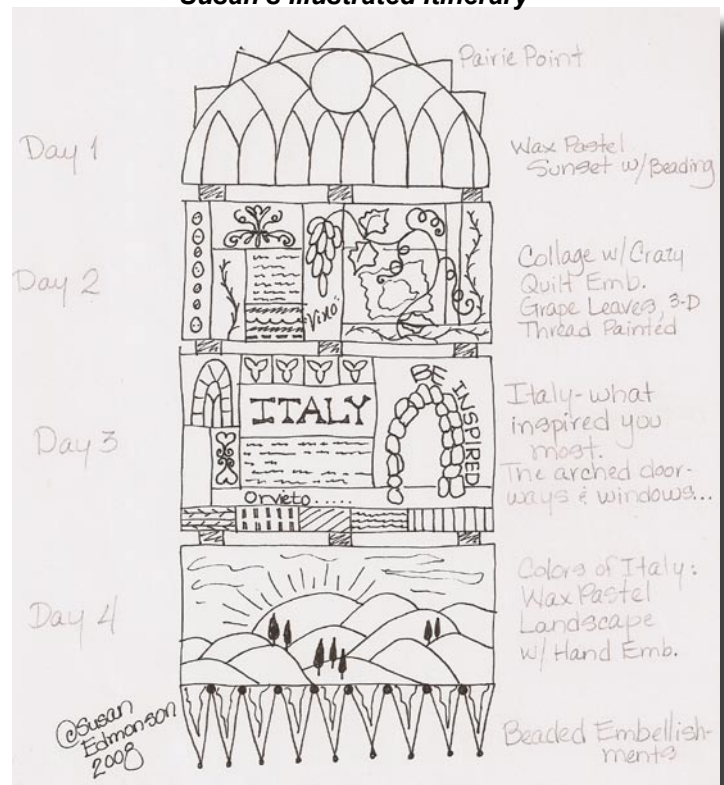 Susan's Illustrated Itinerary
Pairie Point
Day 1
Wax Pastel
Sunset w/Beading
Day 2
"Vino"
Collage w/Crazy
Quilt Emb.
Grape Leaves, 3-D
Thread Painted
Day 3
ITALY
BE INSPIRED
Orvieto.....
Italy-what
inspired you
most.
The arched door-
ways & windows...
Day 4
Colors of Italy:
Wax Pastel
Landscape
w/ Hand Emb.
©Susan
Edmonson
2008
Beaded Embellish-
ments